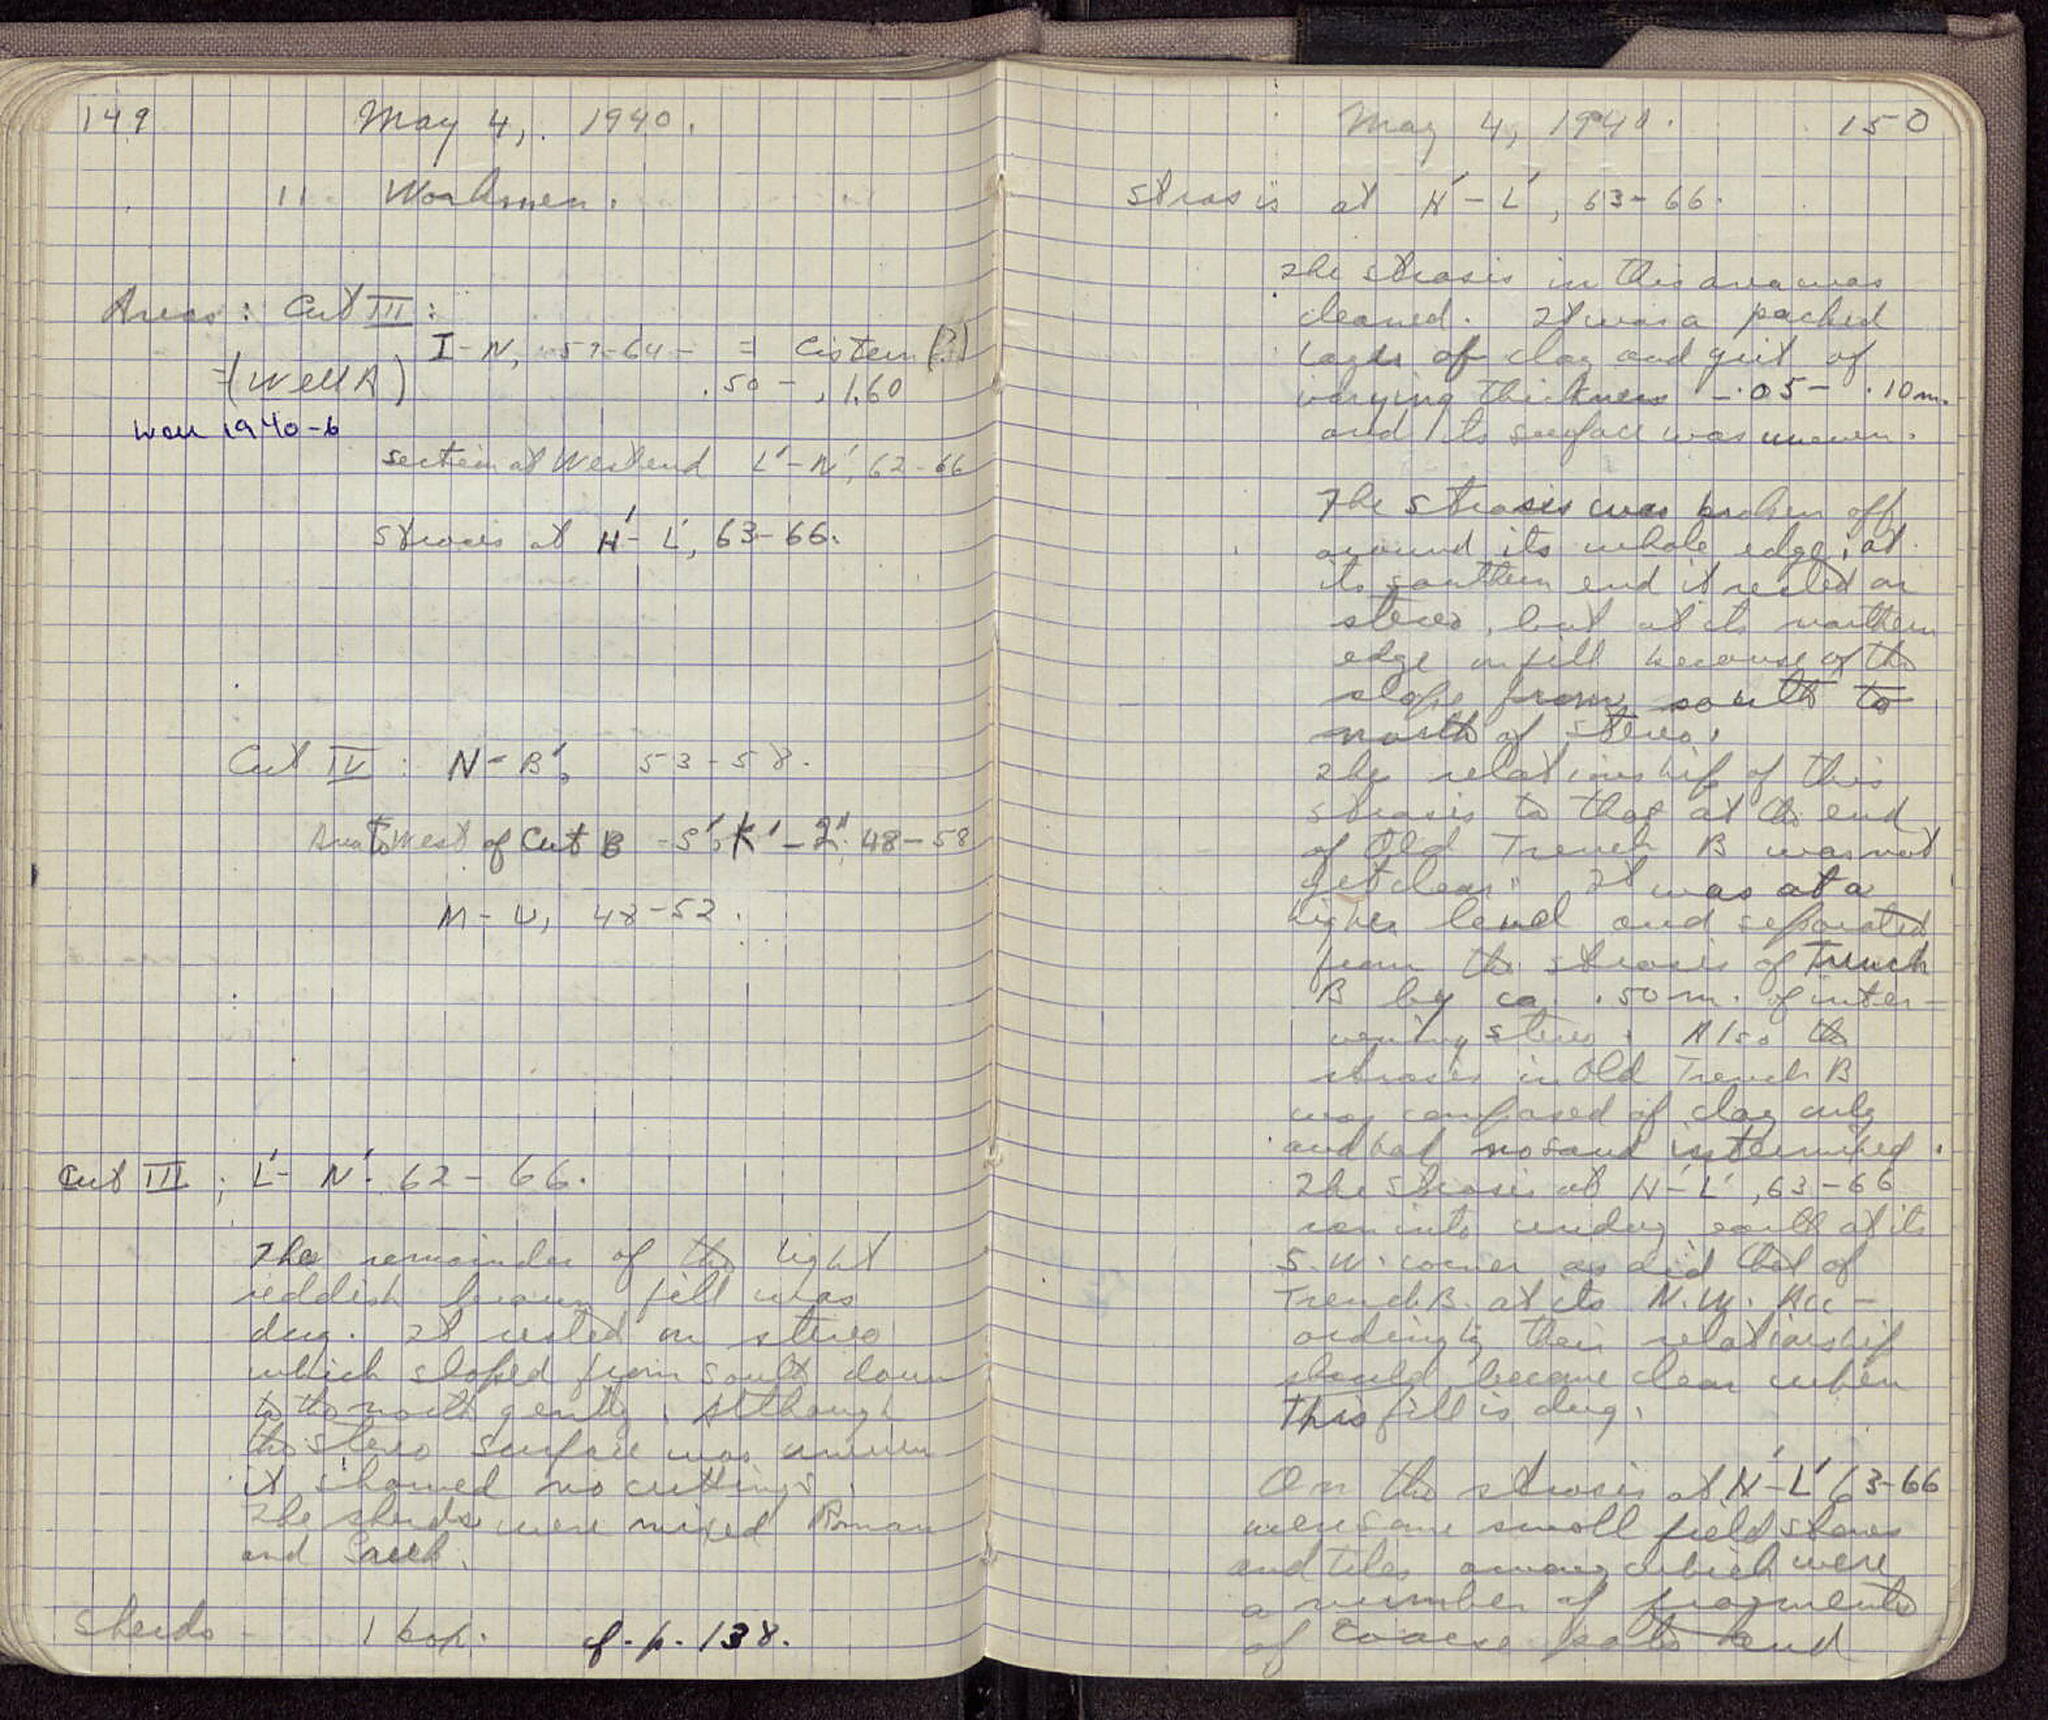 149 May 4, 1940.
11 Workmen.
Areas: Cut III:
I-N, 57-64 - = Cistern (?)
=(Well A) .50 - 1.60
Well 1940-6
section at West end L'-N', 62-66
strosis at H'-L', 63-66.
Cut IV: N-B', 53-58.
Area to West of Cut B - 48-58
M-U, 48-52.
Cut III; L'-N' 62-66.
The remainder of the light
reddish brown fill was
dug. It rested on stereo
which sloped from south down
to the north gently. Although
the stereo surface was uneven
it showed no cuttings.
The sherds were mixed Roman
and Greek.
Sherds - 1 box. cf. p. 138.
May 4, 1940. 150
Strosis at H'-L', 63-66.
The strosis in this area was
cleaned. It was a packed
layer of clay and grit of
varying thickness - .05 - .10m.
and its surface was uneven.
The strosis was broken off
around its whole edge; at
its southern end it rested on
stereo, but at its northern
edge on fill because of the
slope from south to
north of stereo.
The relationship of this
strosis to that at the end
of Old Trench B was not
yet clear. It was at a
higher level and separated
from the strosis of Trench
B by ca. .50 m. of inter-
vening stereo. Also the
strosis in Old Trench B
was composed of clay only
and had no sand intermixed.
The strosis at H'-L', 63-66
ran into undug earth at its
S.W. corner as did that of
Trench B. at its N.W. Acc-
ordingly their relationship
should become clear when
this fill is dug.
On the strosis at H'-L' 63-66
were some small field stones
and tiles among which were
a number of fragments
of coarse pots and